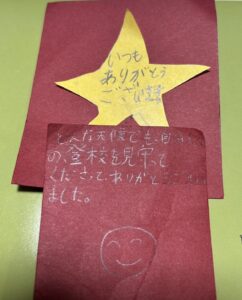 いつも
ありがとう
ございます
どんな天候でも、自分たち
の、登校を見守って
くださって、ありがとうござい
ました。